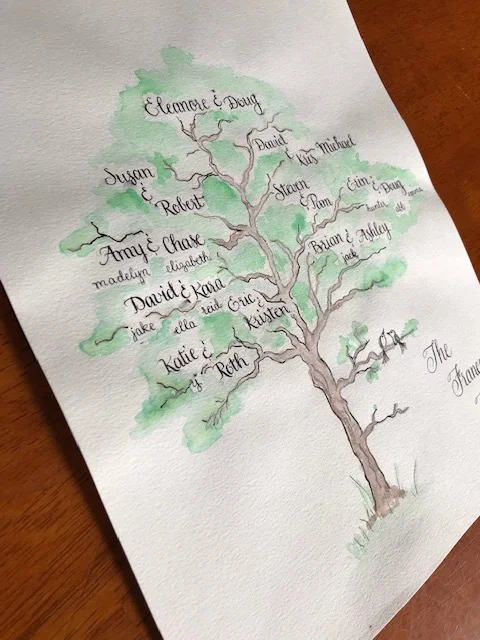 Eleanore & Doug
David
&
Kris Michael
Susan
&
Robert
Steven
& Pam
Erin & Doug
hunter
Amy & Chase
madelyn elizabeth
Brian & Ashley
jack
David & Kara
jake ella reid
Eric
&
Kristen
Katie &
Roth
The